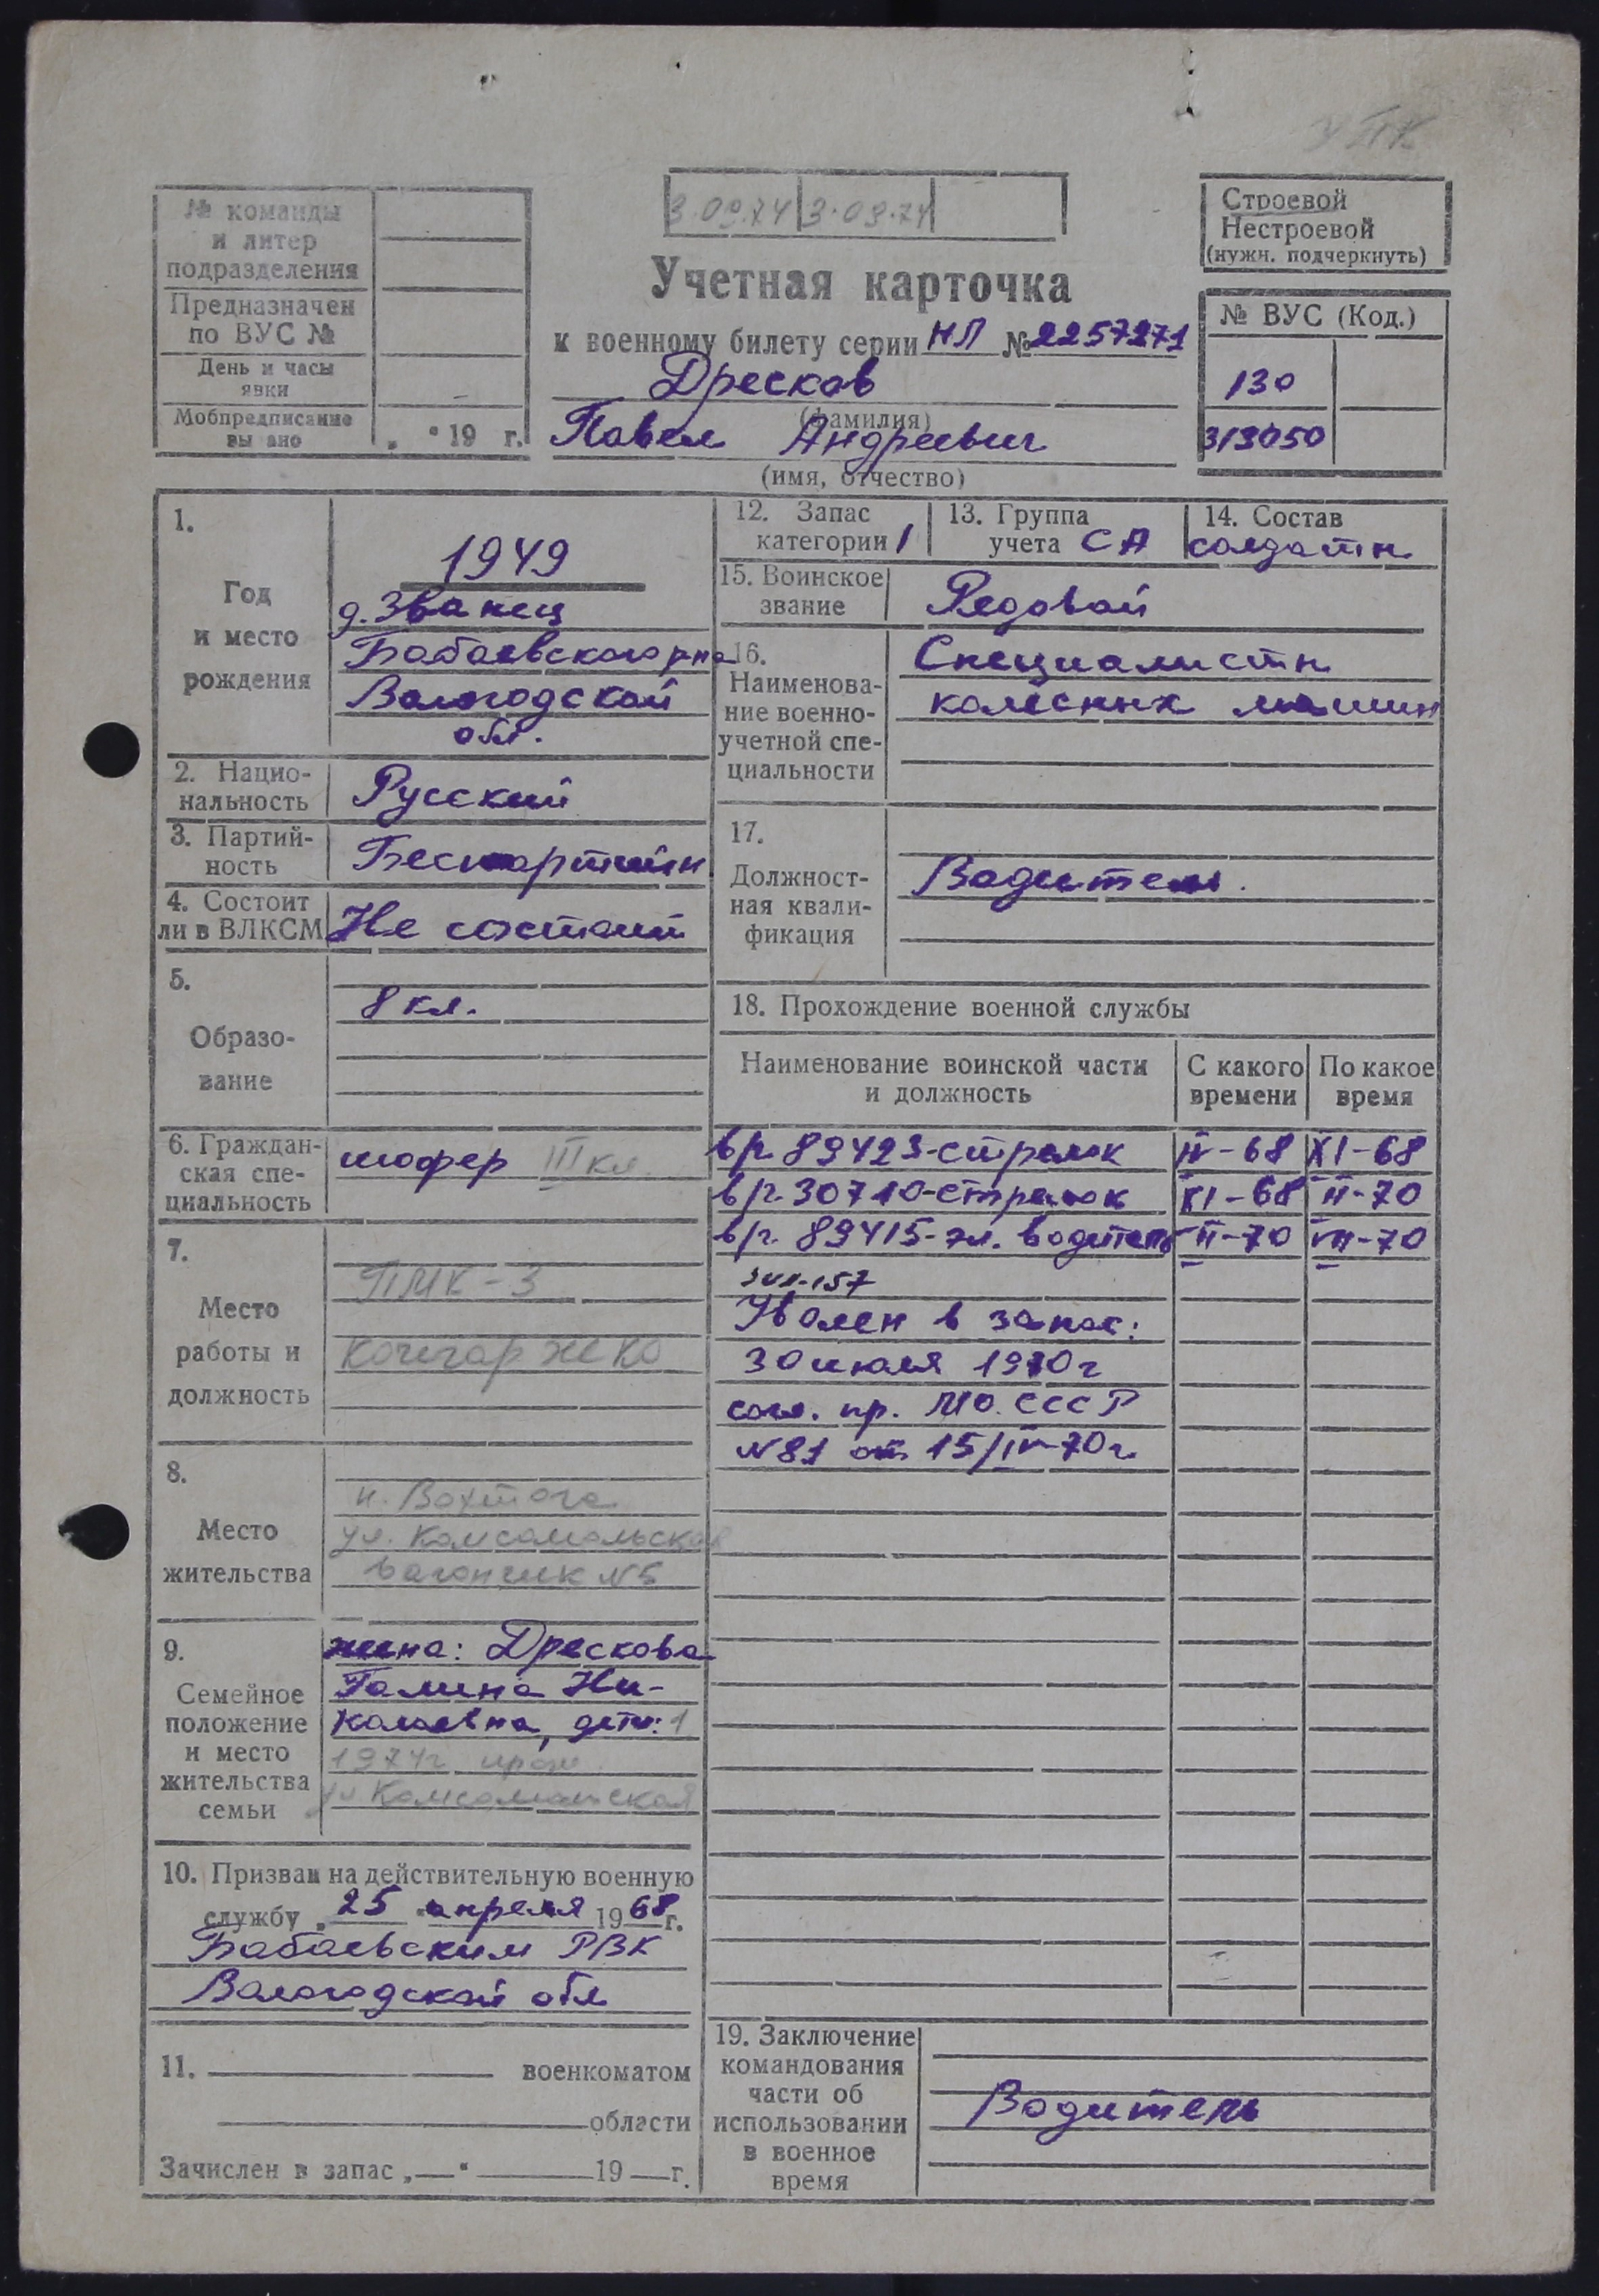 УПК
№ команды
и литер
подразделения
Предназначен
по ВУС №
День и часы
явки
Мобпредписание
вы ано „ “ 19 г.
3.09.74 3.09.74
Учетная карточка
к военному билету серии НЛ № 2257271
Дресков
(фамилия)
Павел Андреевич
(имя, отчество)
Строевой
Нестроевой
(нужн. подчеркнуть)
№ ВУС (Код.)
130
319050
1.
Год
и место
рождения
1949
д. Званец
Бабаевского р-на
Вологодской
обл.
2. Нацио-
нальность
Русский
3. Партий-
ность
Беспартийн
4. Состоит
ли в ВЛКСМ
Не состоит
5.
Образо-
вание
8 кл.
6. Граждан-
ская спе-
циальность
шофер III кл.
7.
Место
работы и
должность
ПМК-3
Кочегар ЖКО
8.
Место
жительства
п. Вохтога
ул. Комсомольская
вагончик №5
9.
Семейное
положение
и место
жительства
семьи
жена: Дрескова
Галина Ни-
колаевна, дети: 1
1974г прож.
ул Комсомольская
10. Призван на действительную военную
службу „ 25 “ апреля 1968 г.
Бабаевским РВК
Вологодской обл
11. военкоматом
области
Зачислен в запас „ “ 19 г.
12. Запас
категории 1
13. Группа
учета СА
14. Состав
солдатн.
15. Воинское
звание
Рядовой
16.
Наименова-
ние военно-
учетной спе-
циальности
Специалисты
колесных машин
17.
Должност-
ная квали-
фикация
Водитель.
18. Прохождение военной службы
Наименование воинской части
и должность
С какого
времени
По какое
время
в/ч 89423-стрелок IV-68 XI-68
в/ч 30710-стрелок XI-68 II-70
в/ч 89415-эл. водитель II-70 VII-70
ЗИЛ-157
Уволен в запас:
30 июля 1970г
согл. пр. МО. СССР
№81 от 15/IV-70г.
19. Заключение
командования
части об
использовании
в военное
время
Водитель